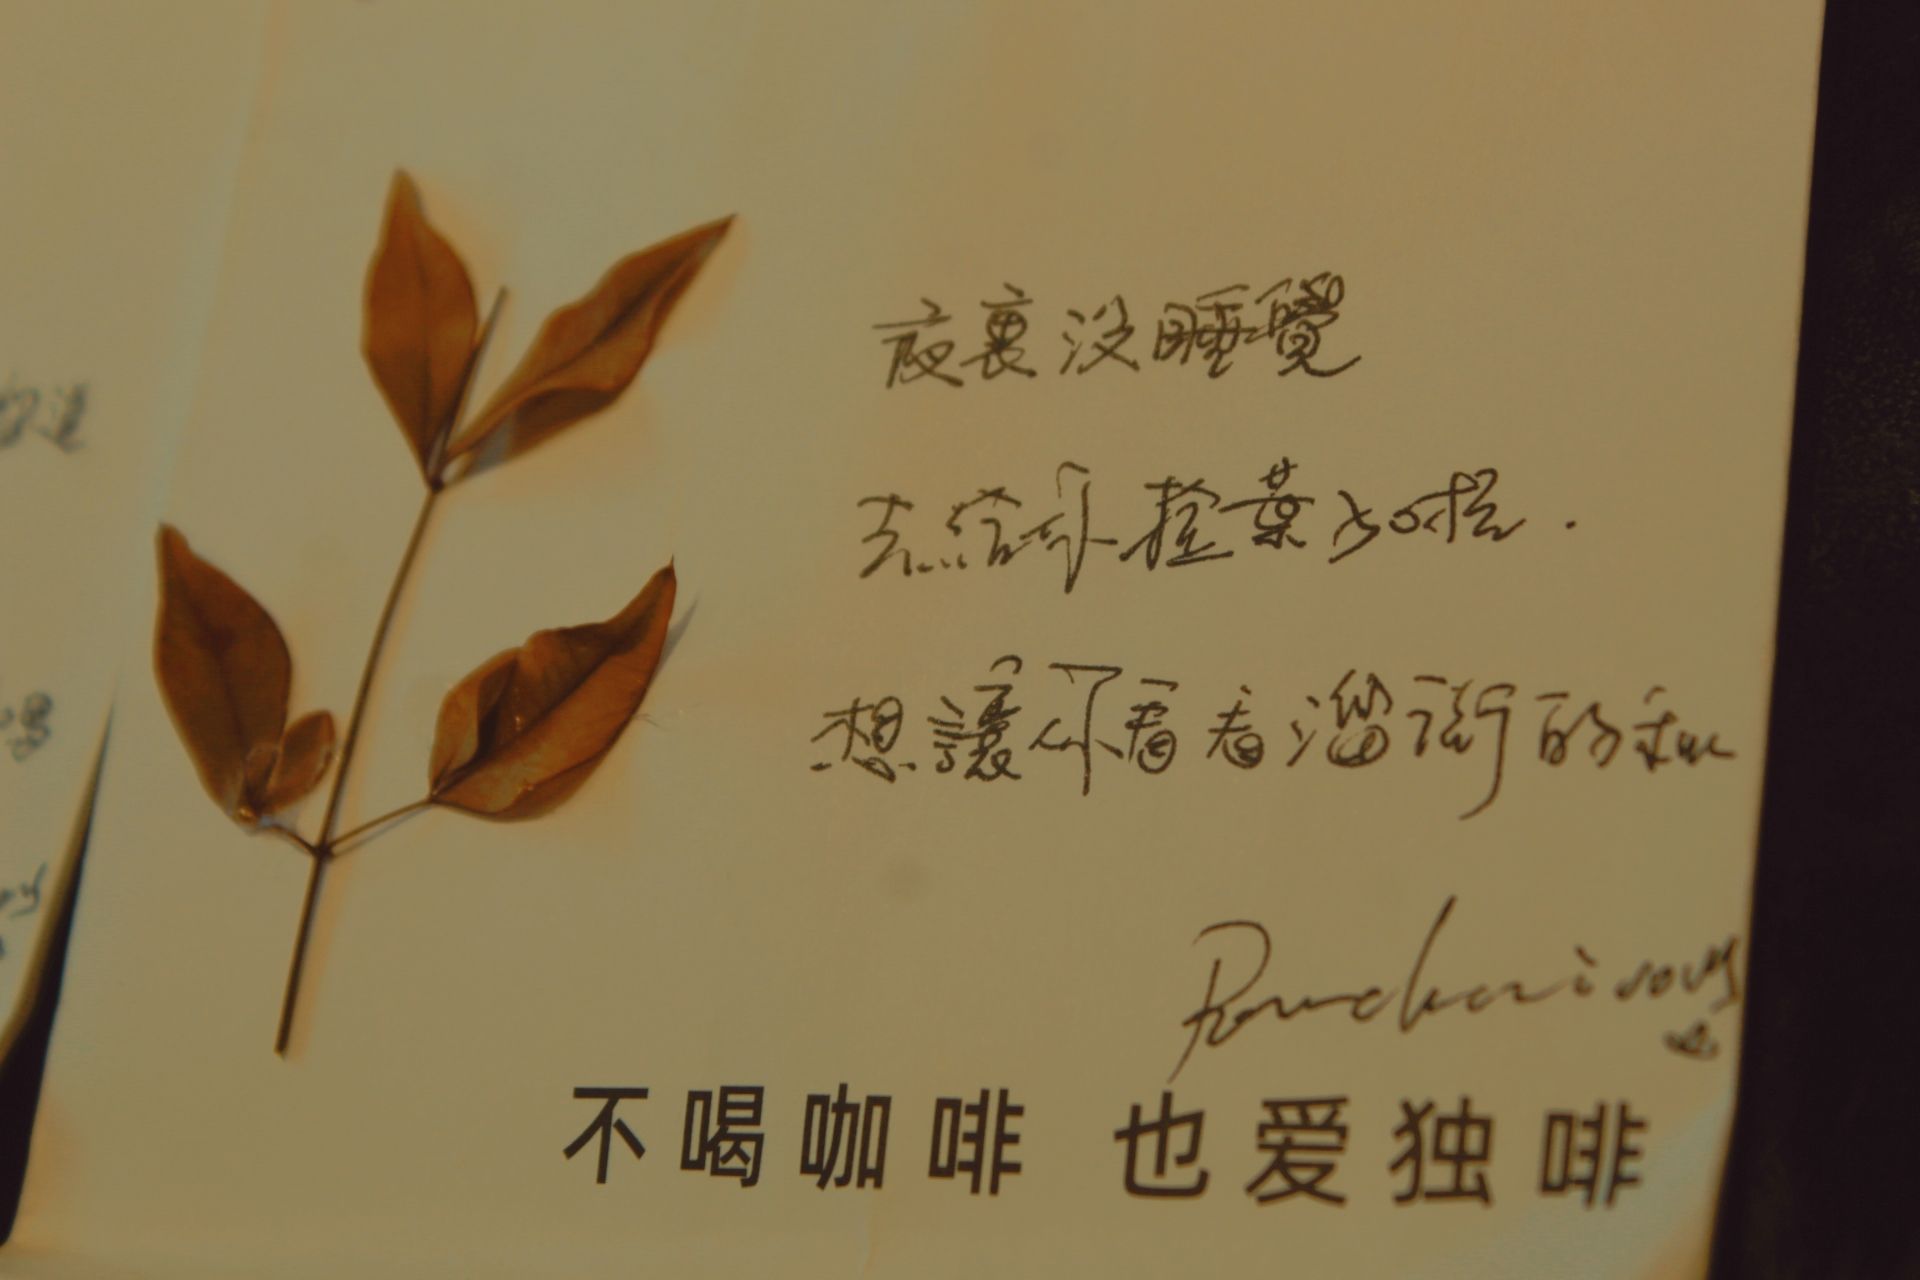 夜裏沒睡覺
去給你撿葉
想讓你看看溜街的秋
不喝咖啡 也爱独啡